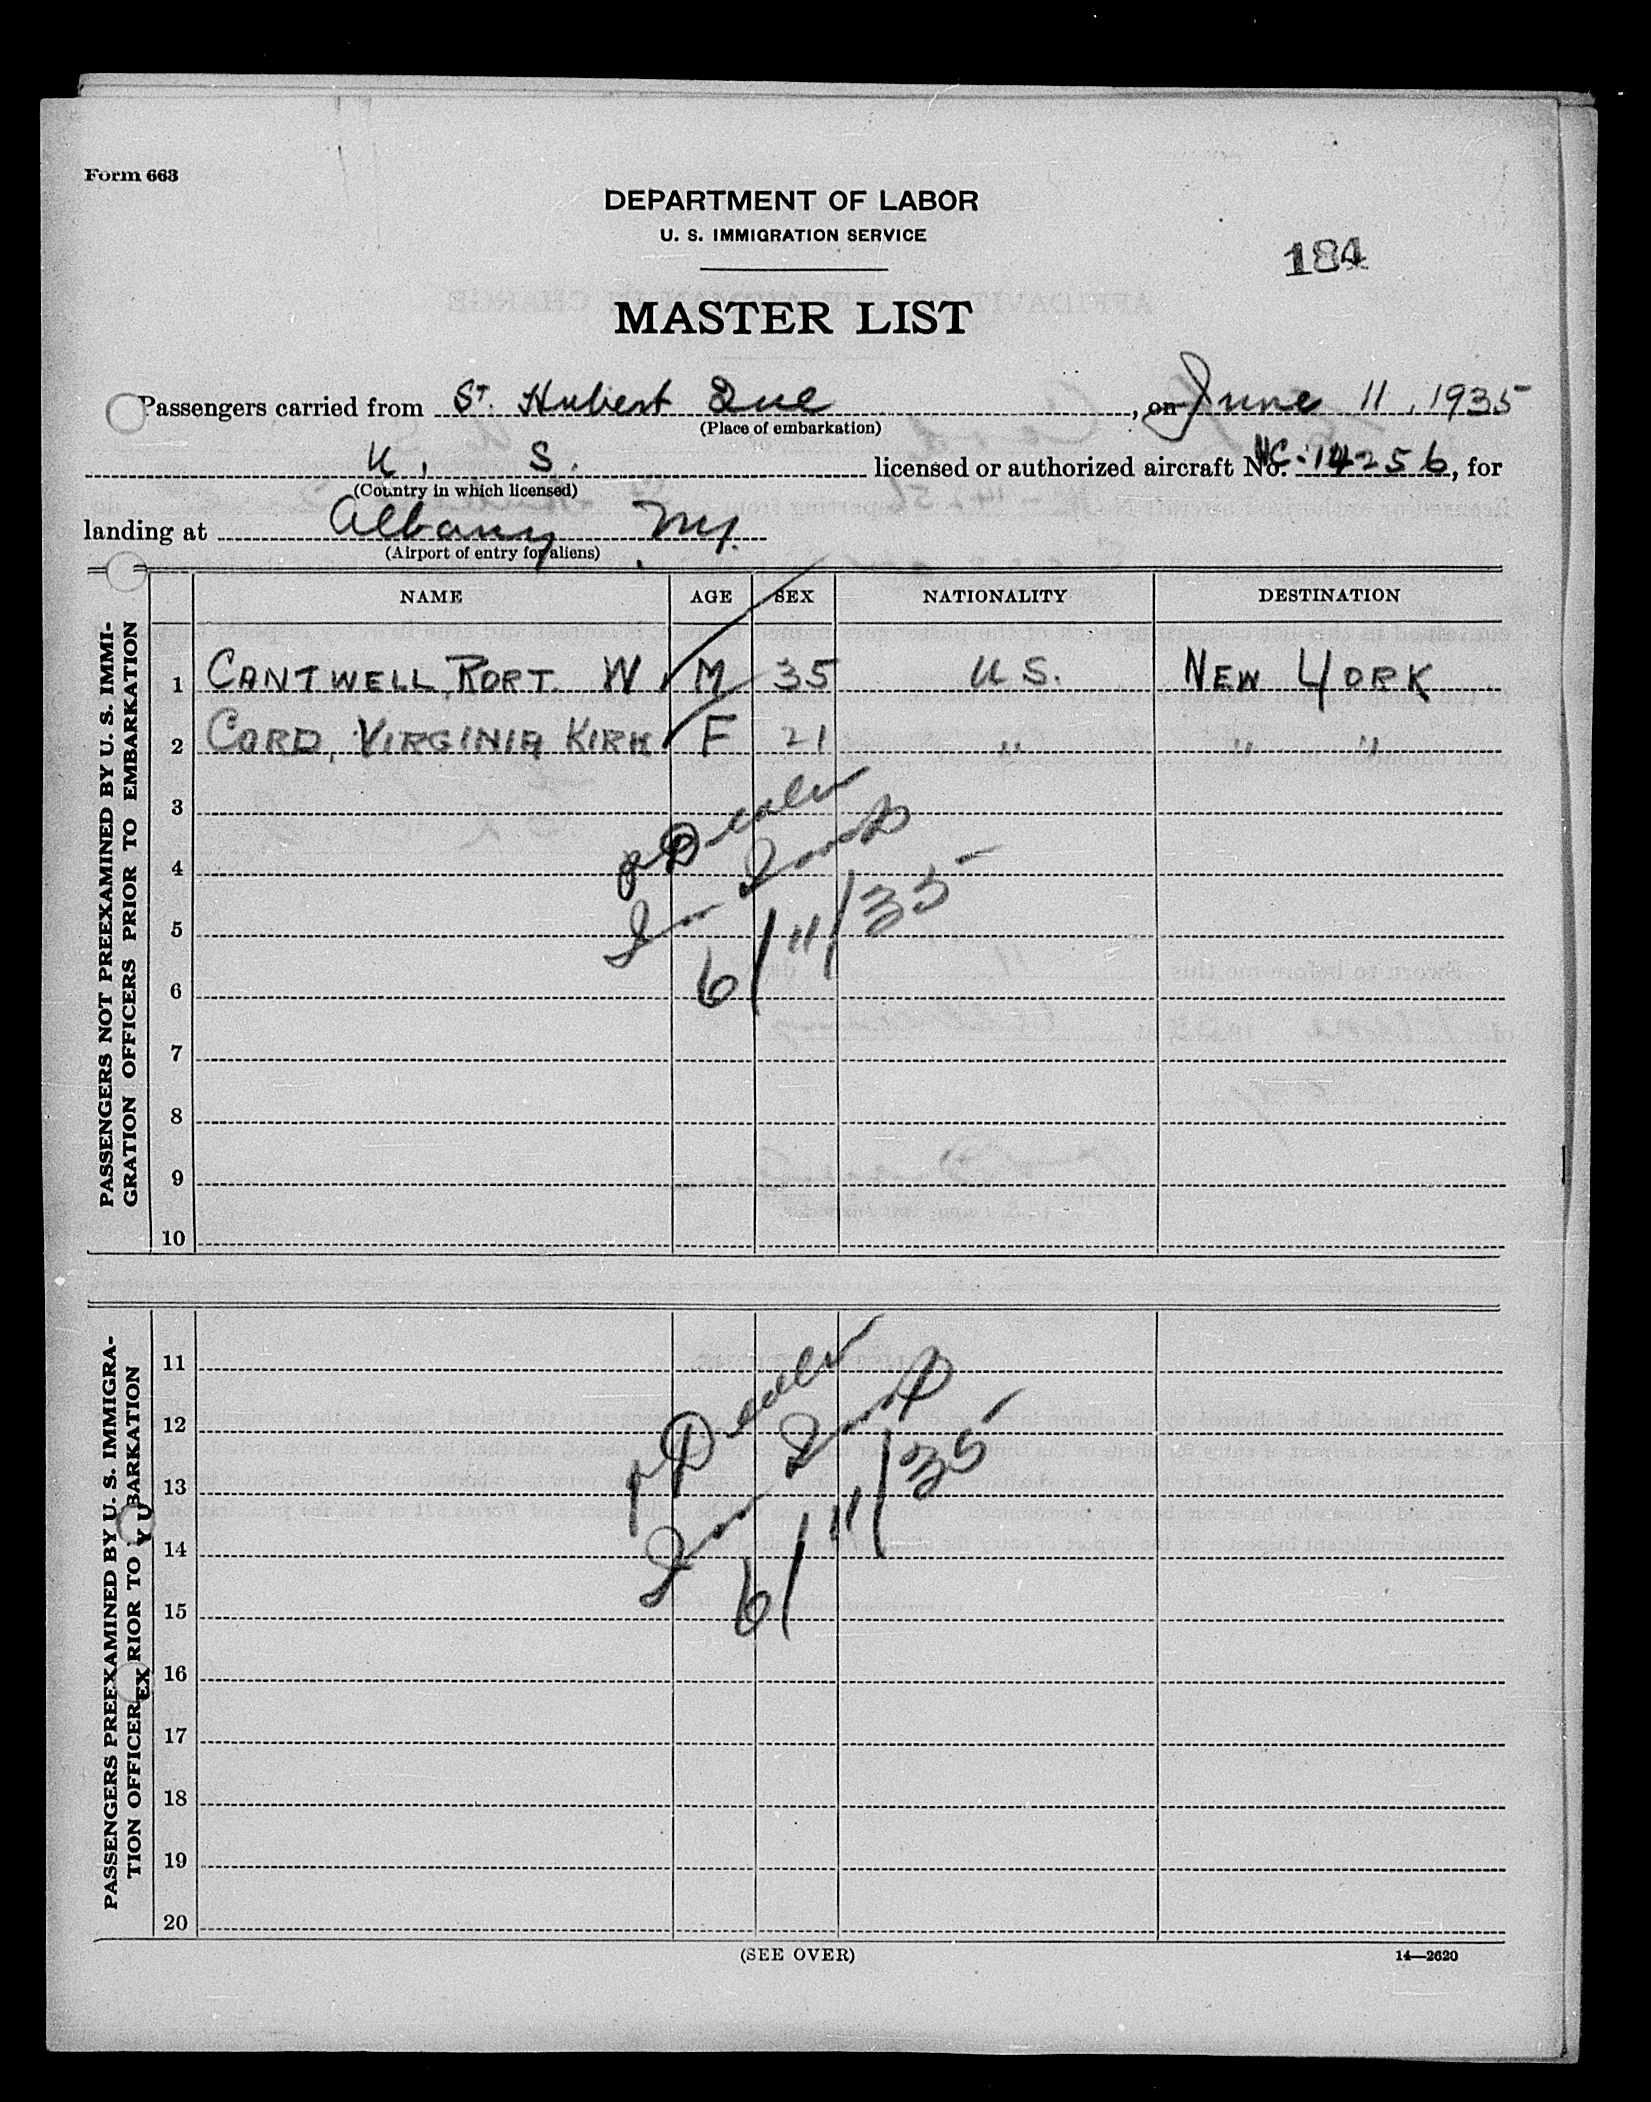 Form 663
DEPARTMENT OF LABOR
U. S. IMMIGRATION SERVICE
184
MASTER LIST
Passengers carried from St. Hubert Que, on June 11, 1935
(Place of embarkation)
U. S. licensed or authorized aircraft No. NC-14256, for
(Country in which licensed)
landing at Albany NY.
(Airport of entry for aliens)
NAME AGE SEX NATIONALITY DESTINATION
PASSENGERS NOT PREEXAMINED BY U. S. IMMI-
GRATION OFFICERS PRIOR TO EMBARKATION
1 CANTWELL, ROBT. W M 35 U S. NEW YORK
2 CORD, VIRGINIA KIRK F 21 " " "
3
4
5
6/11/35
6
7
8
9
10
PASSENGERS PREEXAMINED BY U. S. IMMIGRA-
TION OFFICER RIOR TO BARKATION
11
12
13
6/11/35
14
15
16
17
18
19
20
(SEE OVER)
14—2620